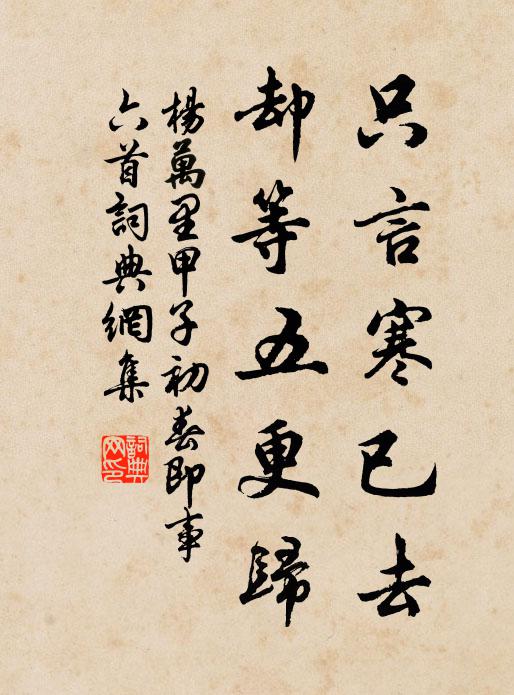 只言寒已去
却等五更歸
楊萬里甲子初春即事
六首詞典網集
詞典網印